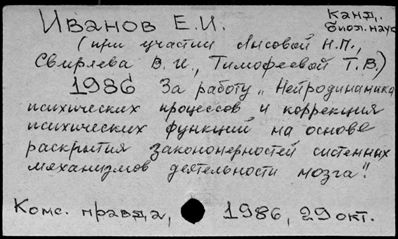 Иванов Е.И. Канд. биол. наук
(при участии Лисовой Н.П.,
Свиряева В.И., Тимофеевой Т.В.)
1986 За работу „Нейродинамика
психических процессов и коррекция
психических функций на основе
раскрытия закономерностей системных
механизмов деятельности мозга".
Комс. правда, 1986, 29 окт.